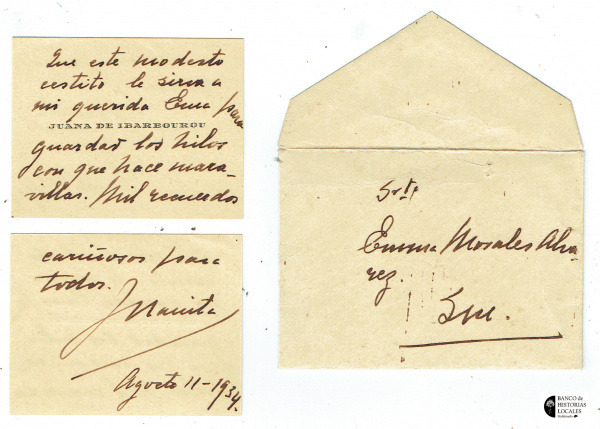 Que este modesto
cestito le sirva a
mi querida Ema para
JUANA DE IBARBOUROU
guardar los hilos
con que hace mara-
villas. Mil recuerdos
cariñosos para
todos.
Juanita
Agosto 11-1934.
Srta
Emma Morales Alva-
rez.
S/m.
BANCO de
HISTORIAS
LOCALES